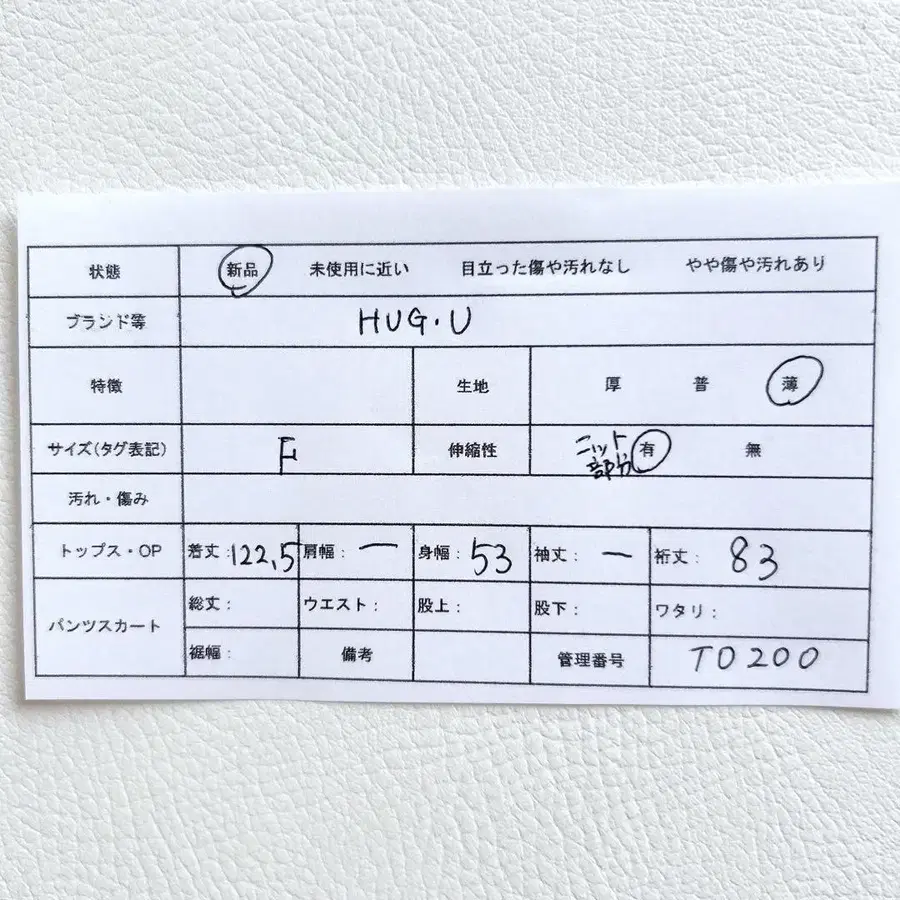 状態 新品 未使用に近い 目立った傷や汚れなし やや傷や汚れあり
ブランド等 HUG・U
特徴 生地 厚 普 薄
サイズ(タグ表記) F 伸縮性 ニット部分 有 無
汚れ・傷み
トップス・OP 着丈:122.5 肩幅: ー 身幅:53 袖丈: ー 裄丈: 83
パンツスカート 総丈: ウエスト: 股上: 股下: ワタリ:
裾幅: 備考 管理番号 TO200